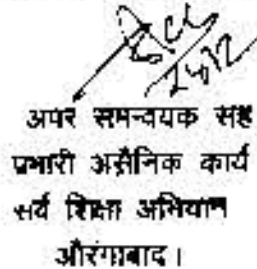 24/12
अपर समन्वयक सह
प्रभारी असैनिक कार्य
सर्व शिक्षा अभियान
औरंगाबाद।